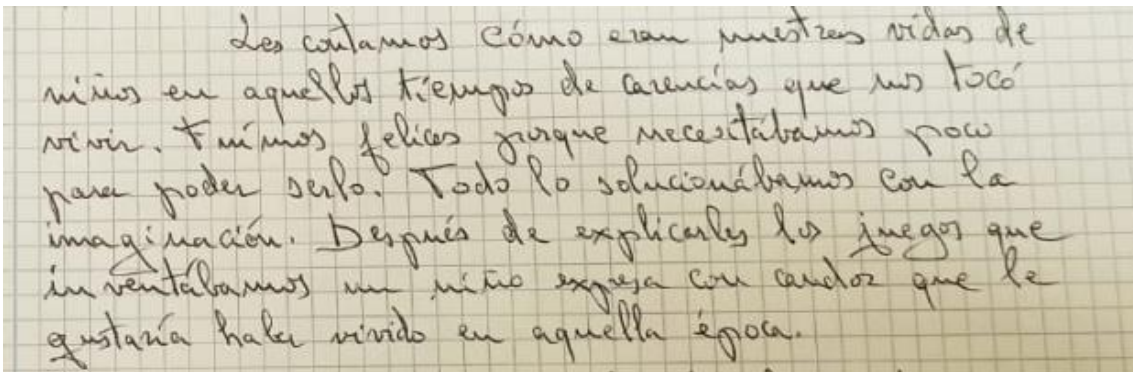 Les contamos cómo eran nuestras vidas de
niños en aquellos tiempos de carencias que nos tocó
vivir. Fuímos felices porque necesitábamos poco
para poder serlo. Todo lo solucionábamos con la
imaginación. Después de explicarles los juegos que
inventábamos un niño expresa con candor que le
gustaría haber vivido en aquella época.